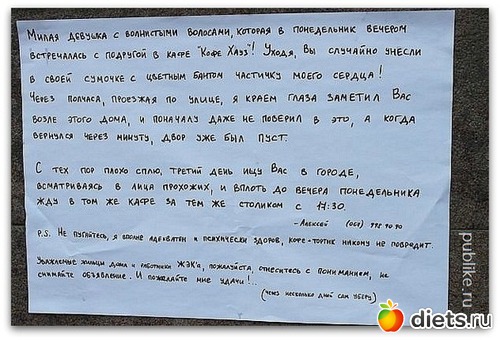 Милая девушка с волнистыми волосами, которая в понедельник вечером
встречалась с подругой в кафе "Кофе Хауз"! Уходя, Вы случайно унесли
в своей сумочке с цветным бантом частичку моего сердца!
Через полчаса, проезжая по улице, я краем глаза заметил Вас
возле этого дома, и поначалу даже не поверил в это, а когда
вернулся через минуту, двор уже был пуст.
С тех пор плохо сплю, третий день ищу Вас в городе,
всматриваясь в лица прохожих, и вплоть до вечера понедельника
жду в том же кафе за тем же столиком с 17:30.
- Алексей
P.S. Не пугайтесь, я вполне адекватен и психически здоров, кофе+тортик никому не повредит.
Уважаемые жильцы дома и работники ЖЭК'а, пожалуйста, отнеситесь с пониманием, не
снимайте объявление. И пожелайте мне удачи!..
(через несколько дней сам уберу)
publike.ru
diets.ru